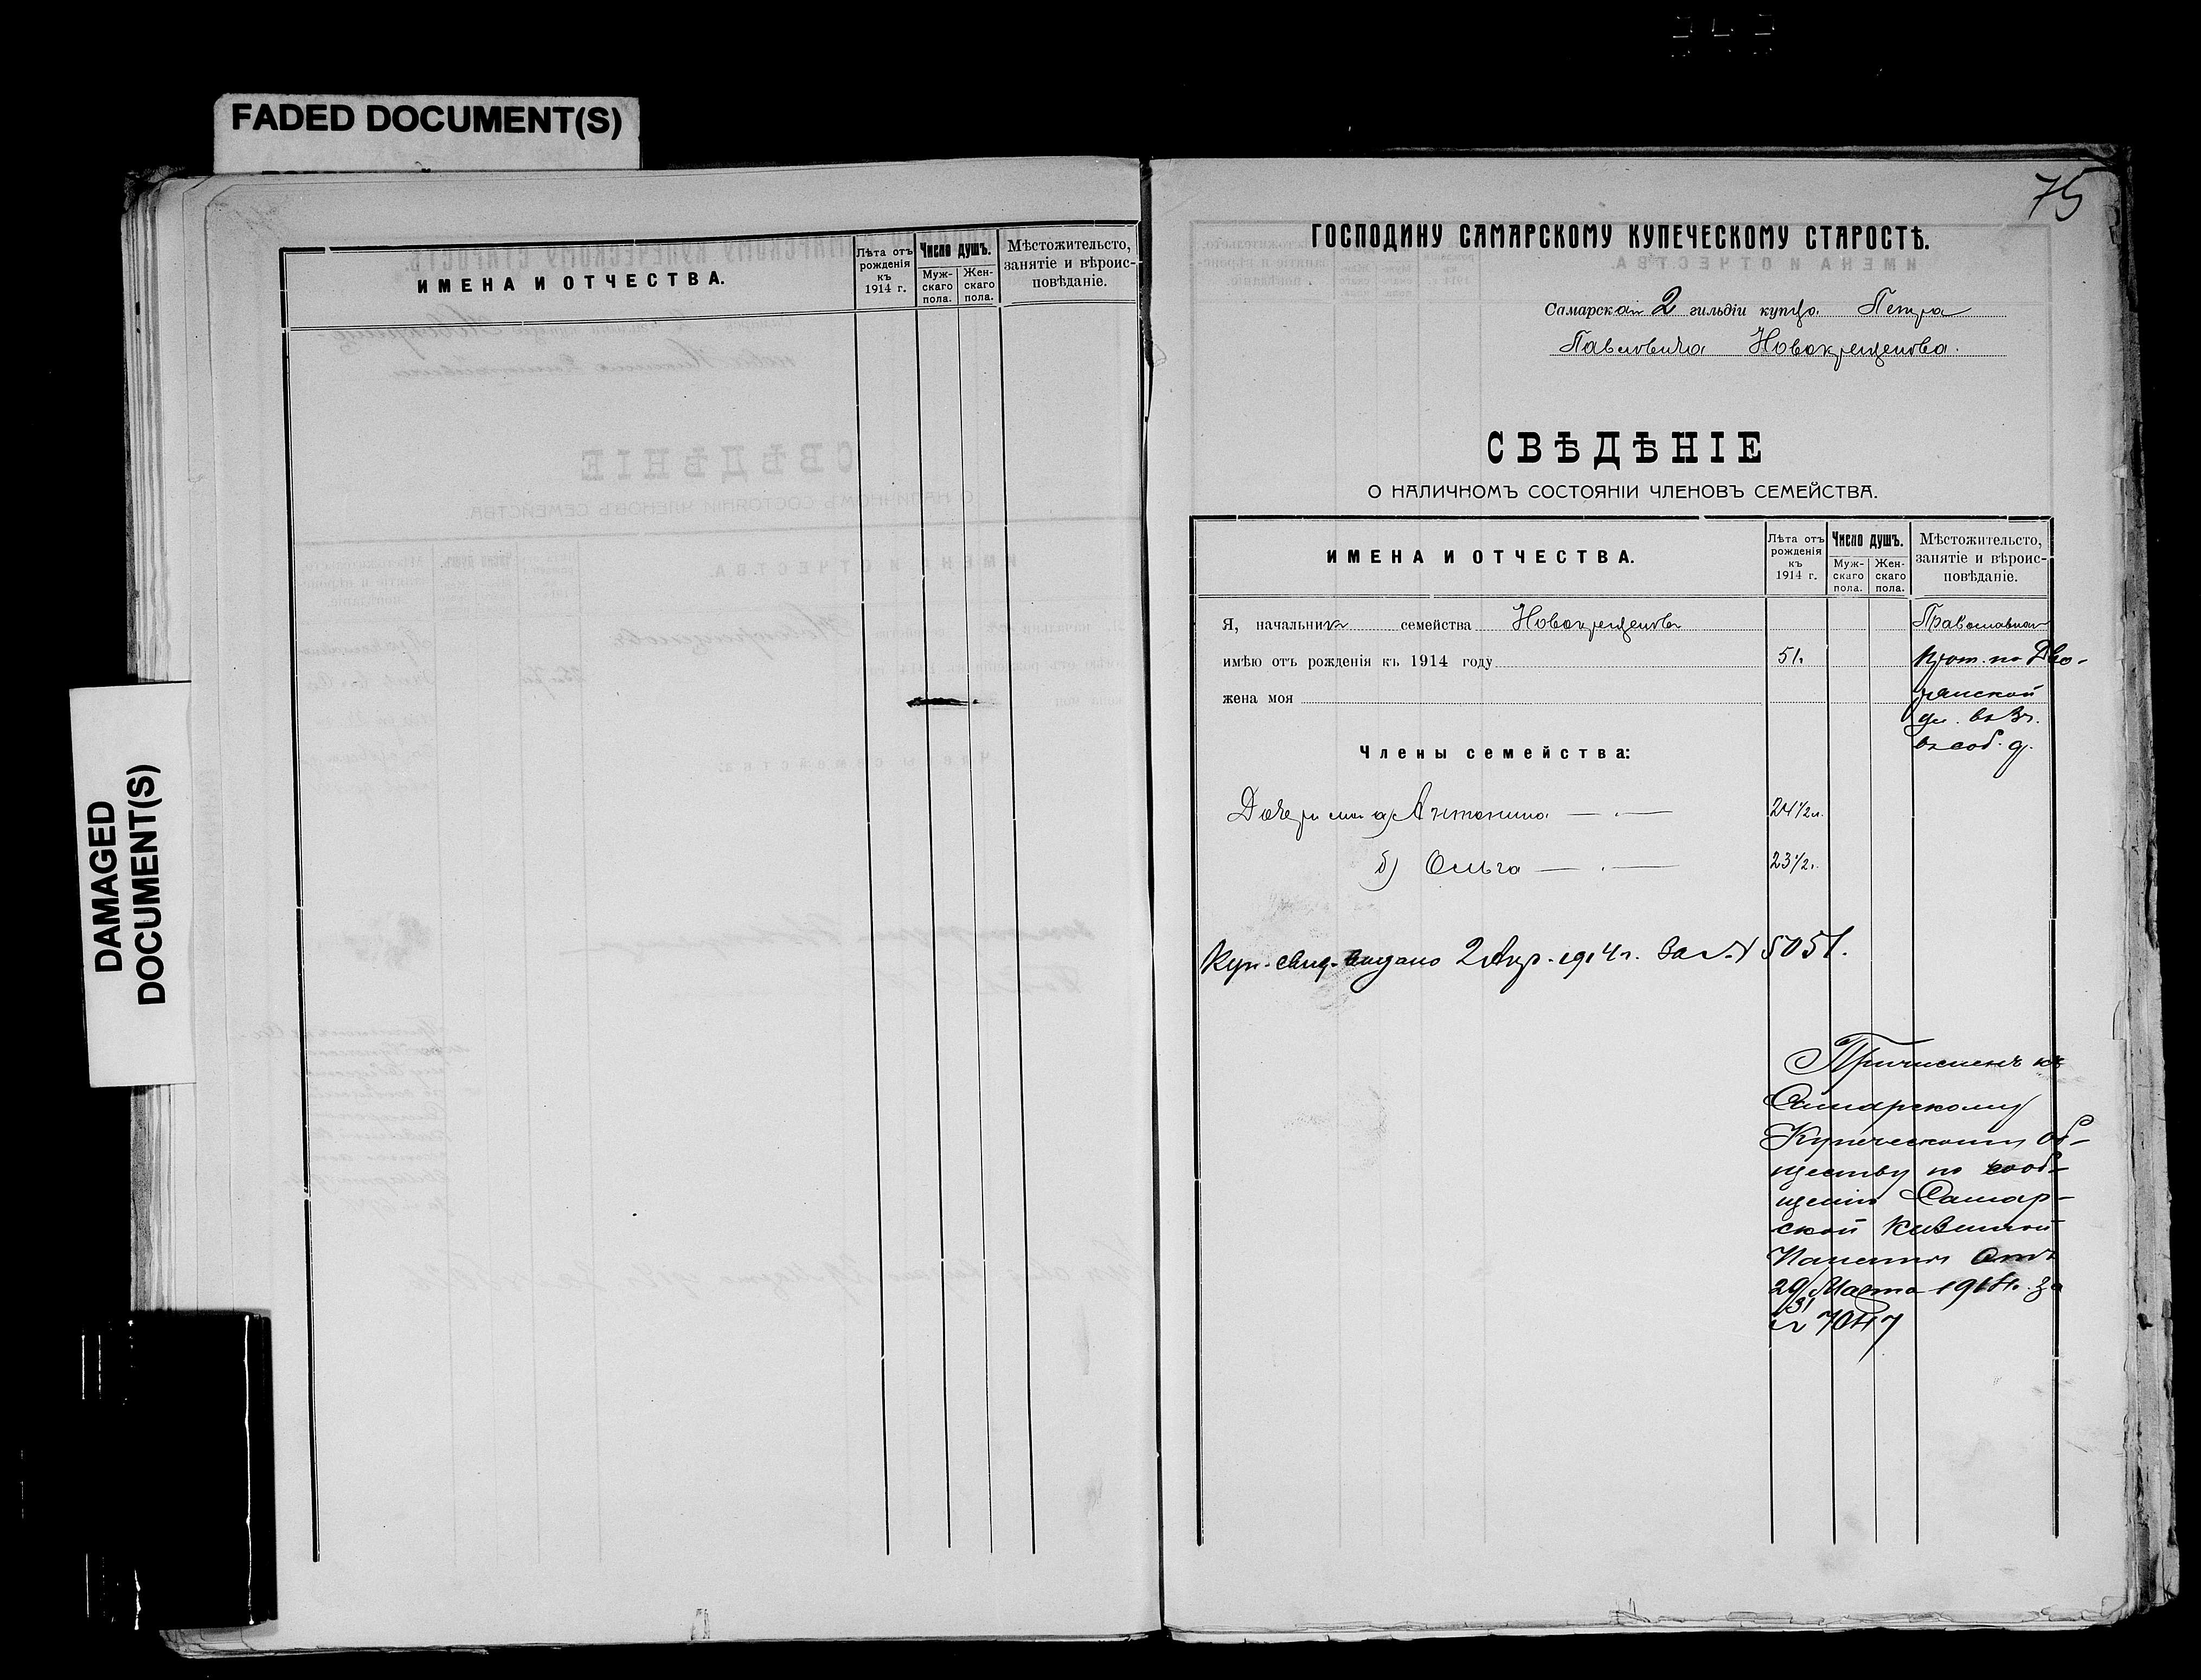 FADED DOCUMENT(S)
DAMAGED
DOCUMENT(S)
ИМЕНА И ОТЧЕСТВА.
Лѣта отъ
рожденія
къ
1914 г.
Число душъ.
Муж-
скаго
пола.
Жен-
скаго
пола.
Мѣстожительсто,
занятіе и вѣроис-
повѣданіе.
75
ГОСПОДИНУ САМАРСКОМУ КУПЕЧЕСКОМУ СТАРОСТѢ.
Самарскаго 2 гильдіи купца Петра
Павловича Новокрещенова.
СВѢДѢНІЕ
О НАЛИЧНОМЪ СОСТОЯНІИ ЧЛЕНОВЪ СЕМЕЙСТВА.
ИМЕНА И ОТЧЕСТВА.
Лѣта отъ
рожденія
къ
1914 г.
Число душъ.
Муж-
скаго
пола.
Жен-
скаго
пола.
Мѣстожительсто,
занятіе и вѣроис-
повѣданіе.
Я, начальникъ семейства Новокрещеновъ
имѣю отъ рожденія къ 1914 году 51.
жена моя
Православнаго
прот. по Дво-
рянской
ул. въ
въ соб. д.
Члены семейства:
Дочери мои а) Антонина 24 1/2 л.
б) Ольга 23 1/2.
Куп. свид. выдано 2 Апр. 1914 г. за № 5051.
Причисленъ къ
Самарскому
Купеческому об-
ществу по сооб-
щенію Самар-
ской Казенной
Палаты отъ
29/31 Марта 1914 г. за
№ 7047